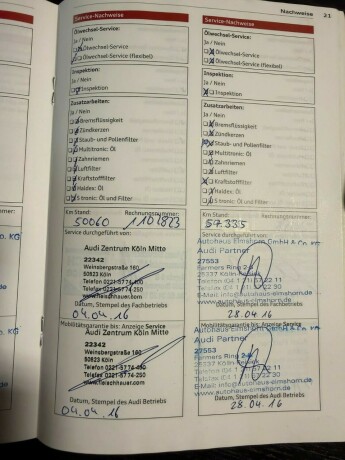 Nachweise 21
Service-Nachweise
Ölwechsel-Service:
Ja / Nein
Ölwechsel-Service
Ölwechsel-Service (flexibel)
Inspektion:
Ja / Nein
Inspektion
Zusatzarbeiten:
Ja / Nein
Bremsflüssigkeit
Zündkerzen
Staub- und Pollenfilter
Multitronic: Öl
Zahnriemen
Luftfilter
Kraftstofffilter
Haldex: Öl
S tronic: Öl und Filter
Km Stand: Rechnungsnummer:
50060 1104823
Service durchgeführt von:
Audi Zentrum Köln Mitte
22342
Weinsbergstraße 160
50823 Köln
Telefon 0221-5774-100
Telefax 0221-5774-250
www.fleischhauer.com
04.04.16
Datum, Stempel des Fachbetriebs
Mobilitätsgarantie bis: Anzeige Service
Audi Zentrum Köln Mitte
22342
Weinsbergstraße 160
50823 Köln
Telefon 0221-5774-100
Telefax 0221-5774-250
www.fleischhauer.com
Datum, Stempel des Audi Betriebs
04.04.16
Service-Nachweise
Ölwechsel-Service:
Ja / Nein
Ölwechsel-Service
Ölwechsel-Service (flexibel)
Inspektion:
Ja / Nein
Inspektion
Zusatzarbeiten:
Ja / Nein
Bremsflüssigkeit
Zündkerzen
Staub- und Pollenfilter
Multitronic: Öl
Zahnriemen
Luftfilter
Kraftstofffilter
Haldex: Öl
S tronic: Öl und Filter
Km Stand: Rechnungsnummer:
57.335
Service durchgeführt von:
Autohaus Elmshorn GmbH & Co. KG
Audi Partner
27553
Ramskamp
25337
Telefon
Telefax
E-Mail: info@autohaus-elmshorn.de
Datum, Stempel des Fachbetriebs
28.04.16
Mobilitätsgarantie bis: Anzeige Service
Autohaus Elmshorn GmbH & Co. KG
Audi Partner
27553
Telefon
Telefax
E-Mail: info@autohaus-elmshorn.de
Datum, Stempel des Audi Betriebs
28.04.16